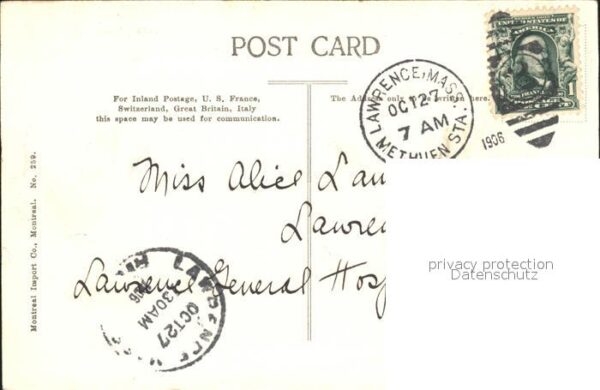 POST CARD
For Inland Postage, U. S. France,
Switzerland, Great Britain, Italy
this space may be used for communication.
The Address only to be written here.
LAWRENCE, MASS.
OCT 27
7 AM
METHUEN STA.
1906
1
Miss Alice
Lawrence General
LAWRENCE
OCT 27
30 AM
Montreal Import Co., Montreal. No. 259.
privacy protection
Datenschutz